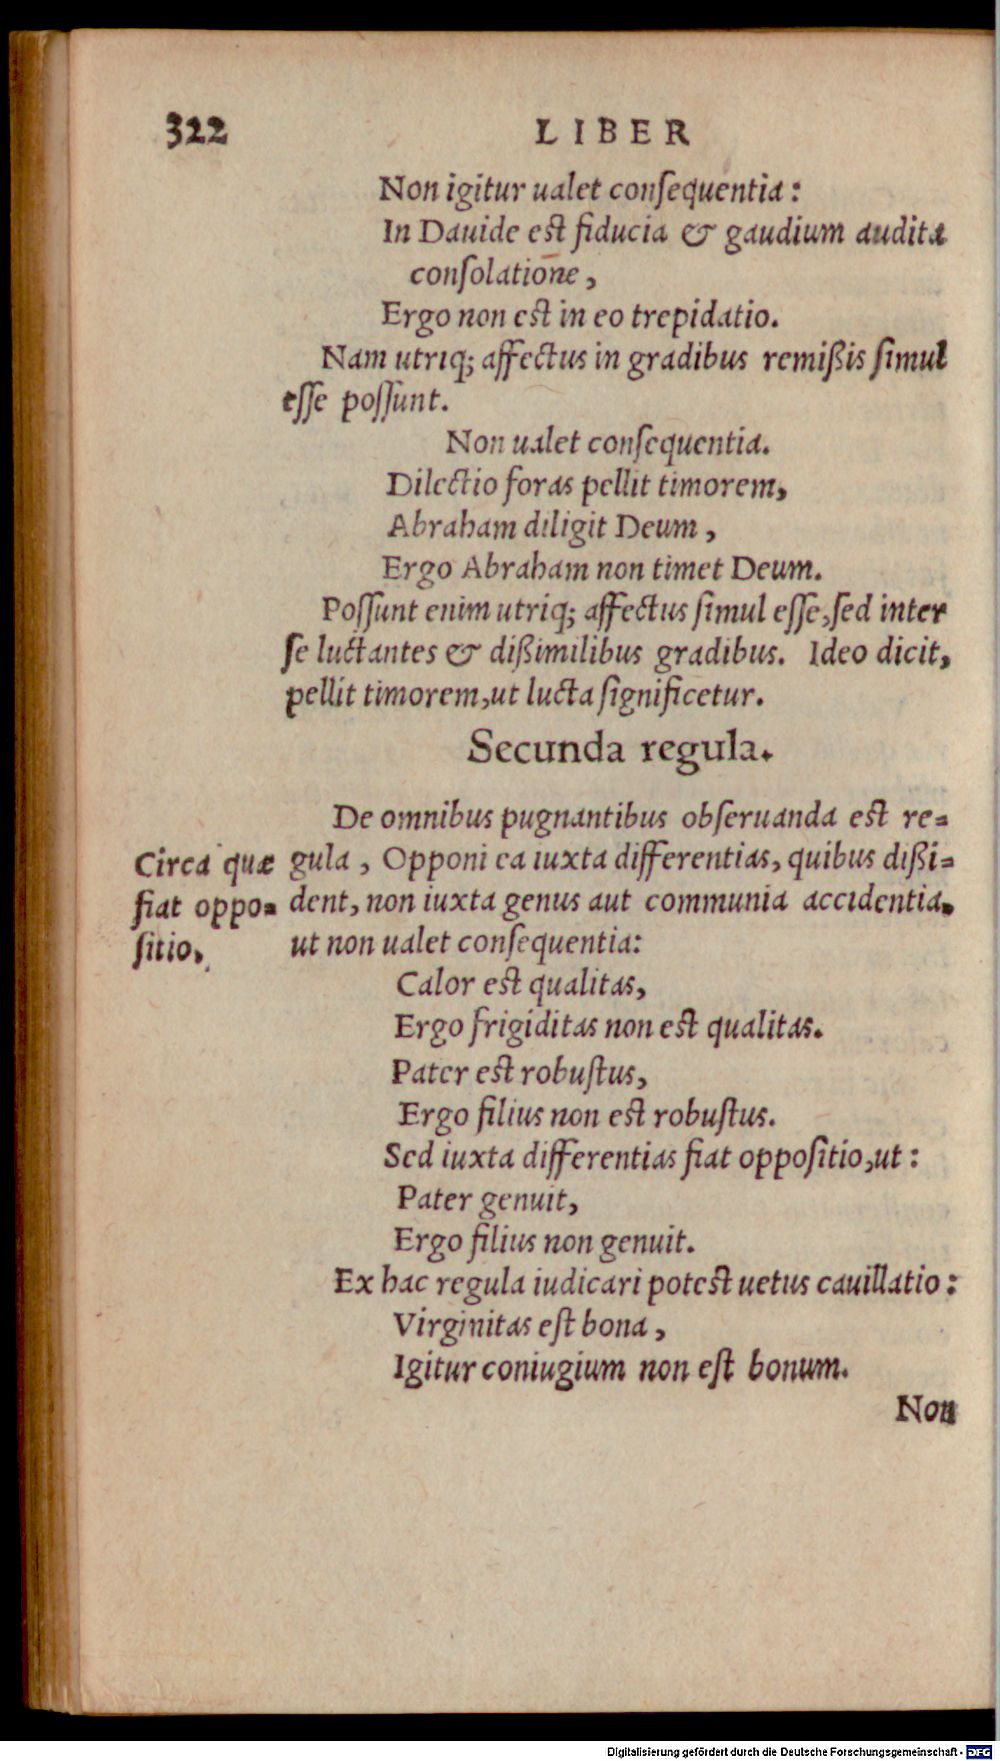 322 LIBER
Non igitur ualet conſequentia:
In Dauide eſt fiducia & gaudium audita
conſolatione,
Ergo non eſt in eo trepidatio.
Nam utriq; affectus in gradibus remiſsis ſimul
eſſe poſſunt.
Non ualet conſequentia.
Dilectio foras pellit timorem,
Abraham diligit Deum,
Ergo Abraham non timet Deum.
Poſſunt enim utriq; affectus ſimul eſſe, ſed inter
ſe luctantes & diſsimilibus gradibus. Ideo dicit,
pellit timorem, ut lucta ſignificetur.
Secunda regula.
De omnibus pugnantibus obſeruanda eſt re-
gula, Opponi ea iuxta differentias, quibus diſsi-
dent, non iuxta genus aut communia accidentia.
ut non ualet conſequentia:
Circa quæ
fiat oppo-
ſitio.
Calor eſt qualitas,
Ergo frigiditas non eſt qualitas.
Pater eſt robuſtus,
Ergo filius non eſt robuſtus.
Sed iuxta differentias fiat oppoſitio, ut:
Pater genuit,
Ergo filius non genuit.
Ex hac regula iudicari poteſt uetus cauillatio:
Virginitas eſt bona,
Igitur coniugium non eſt bonum.
Non
Digitalisierung gefördert durch die Deutsche Forschungsgemeinschaft - DFG